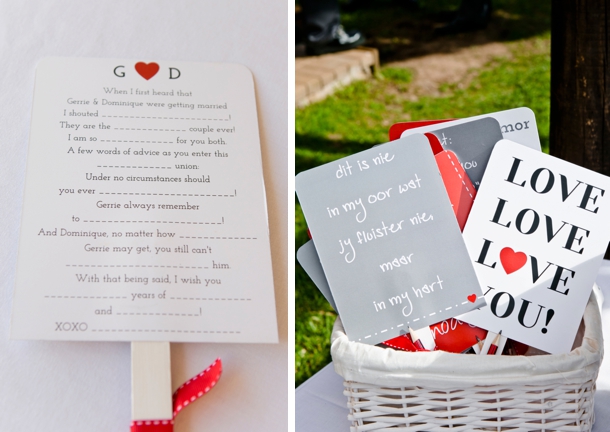 G D
When I first heard that
Gerrie & Dominique were getting married
I shouted ____________________!
They are the ____________ couple ever!
I am so ____________ for you both.
A few words of advice as you enter this
____________ union.
Under no circumstances should
you ever ____________________!
Gerrie always remember
to ____________________!
And Dominique, no matter how ____________
Gerrie may get, you still can't
____________________ him.
With that being said, I wish you
____________ years of ____________
and ____________!
XOXO ____________________
dit is nie
in my oor wat
jy fluister nie,
maar
in my hart
t:
mor
you
LOVE
LOVE
L VE
YOU!